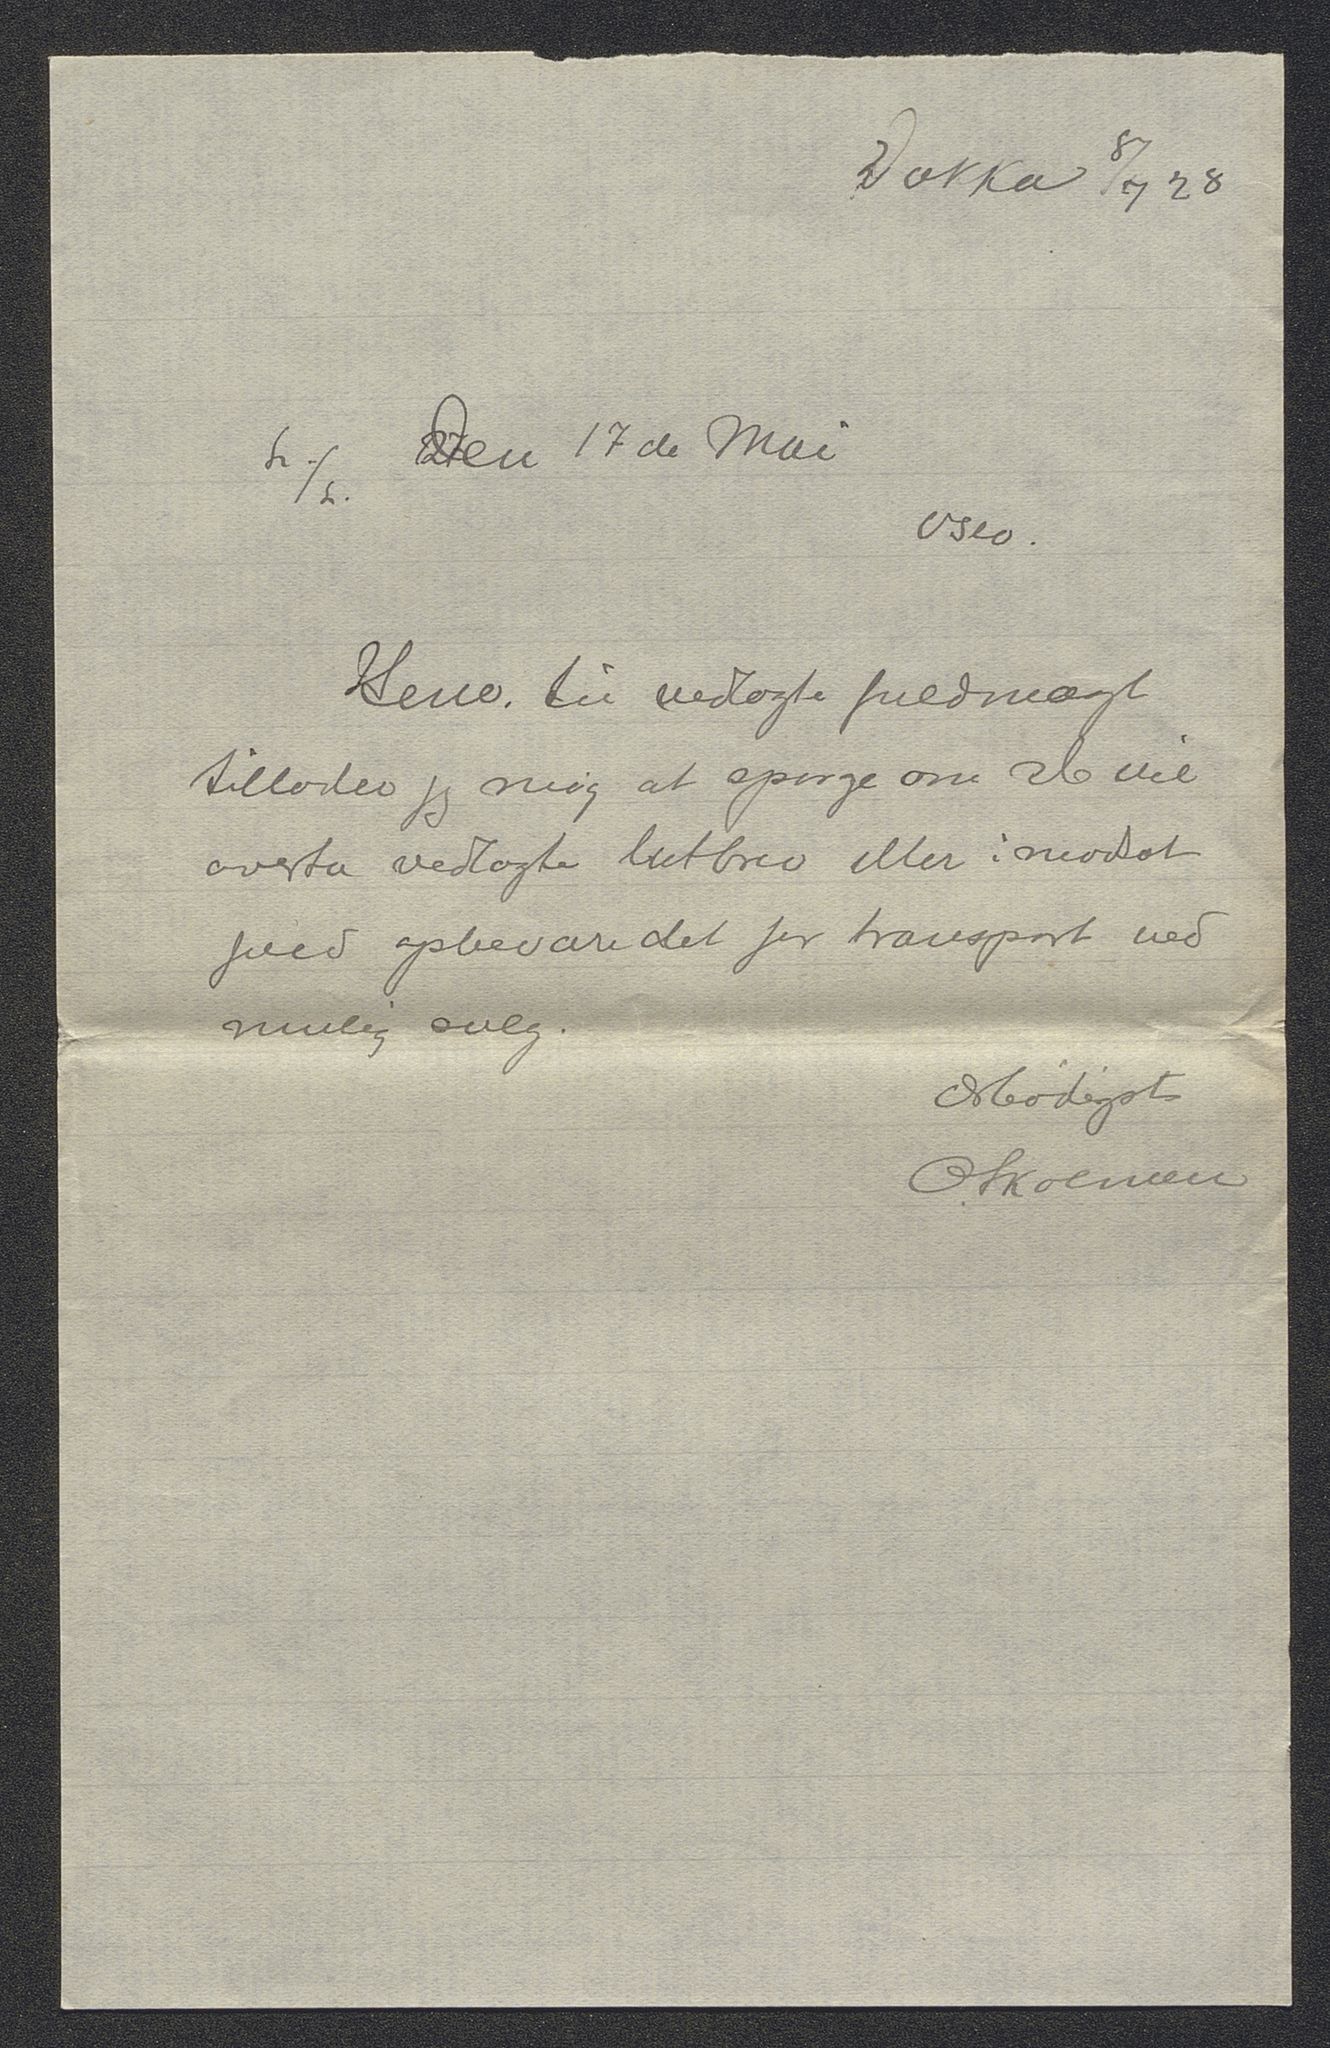 Dokka 8/7 28
A/L. Den 17de Mai
Oslo.
Henv. til vedlagte fuldmagt
tillader jeg mig at spørge om De vil
overta vedlagte lutbrev eller i modsat
fald opbevare det for transport ved
mulig salg.
Ærbødigst
O. Skolmen